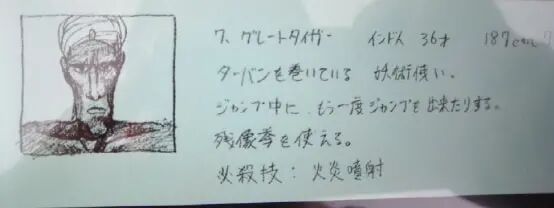 7. グレートタイガー インド人 36才 187cm 7
ターバンを巻いている 妖術使い。
ジャンプ中に、もう一度ジャンプを出来たりする。
残像拳を使える。
必殺技：火炎噴射